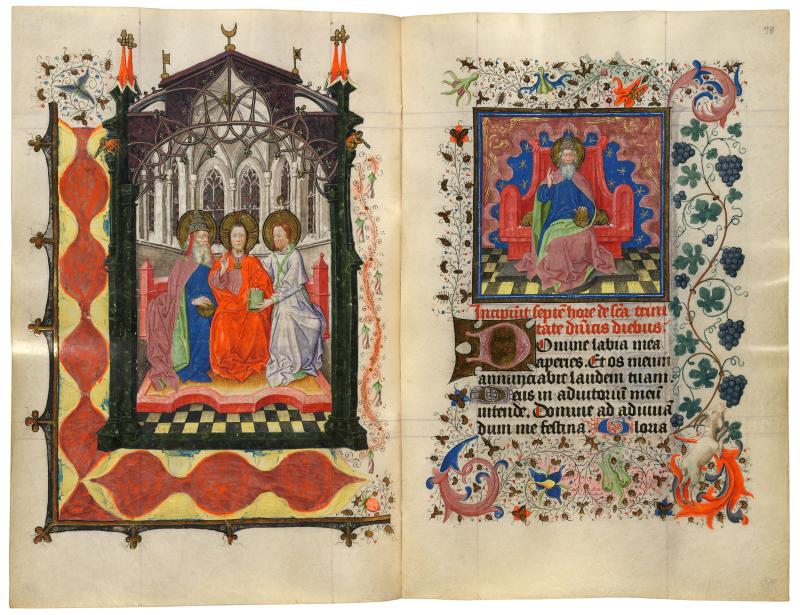 78
Incipiūt septē hore de scā trini
tate dn̄icis diebus:
Domine labia mea
aperies. Et os meum
annunciabit laudem tuam.
Deus in adiutoriū meū
intende. Domine ad adiuuā
dum me festina Gloria